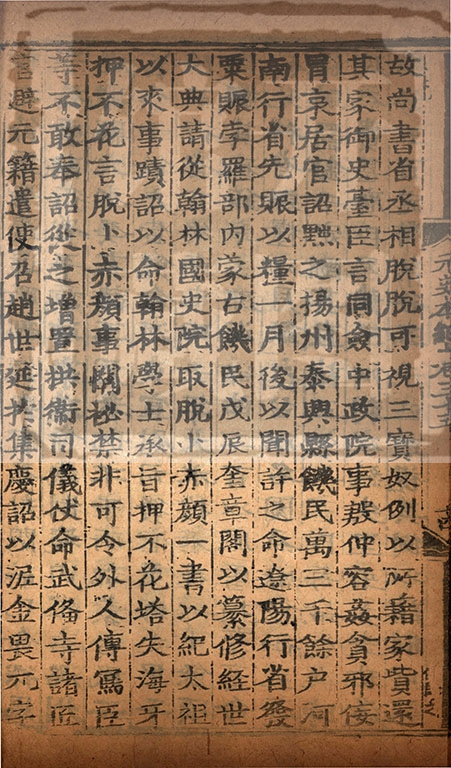 故尚書省丞相脫脫可視三寶奴例以所藉家貲還
其家御史臺臣言同僉中政院事殷仲容姦貪邪佞
冒哀居官詔黜之揚州泰興縣饑民萬三千餘户河
南行省先賑以糧一月後以聞許之命遼陽行省發
粟賑孛羅部內蒙古饑民戊辰奎章閣以纂修経世
大典請從翰林國史院取脫卜赤顏一書以紀太祖
以來事蹟詔以命翰林學士承旨押不花塔失海牙
押不花言脫卜赤顏事關祕禁非可令外人傳寫臣
等不敢奉詔從之增置拱衞司儀仗命武俻寺諸匠
官避元籍遣使召趙世延於集慶詔以泥金畏元字
元史本紀卷三十五